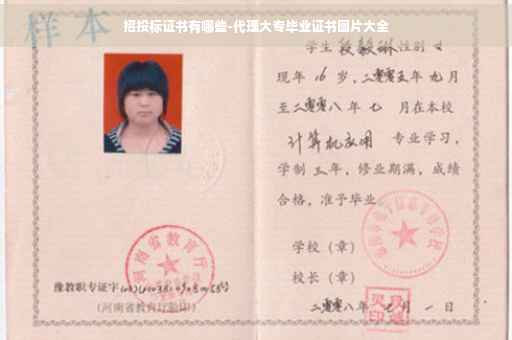 招投标证书有哪些-代理大专毕业证书图片大全
样本
学生段毅琳性别女
现年16岁,二零零五年九月
至二零零八年七月在本校
计算机应用 专业学习,
学制三年,修业期满,成绩
合格,准予毕业。
学校(章)
校长(章)
二零零八年七月一日
河南省教育厅
豫教职专证字
(河南省教育厅验印)